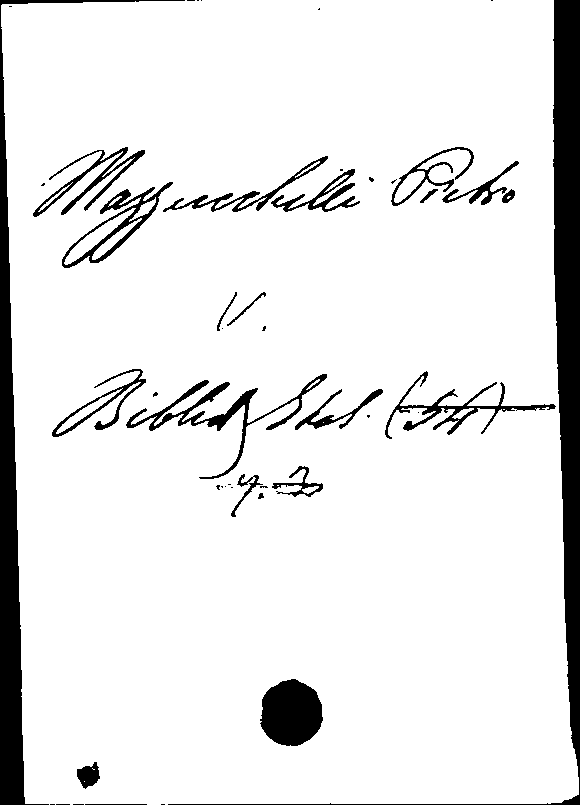 Mazzucchelli Pietro
V.
Bibliog Ital. (54)